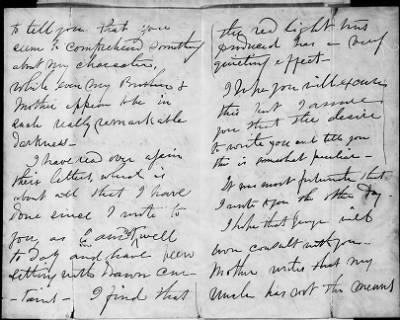 to tell you that you
seem to comprehend something
about my character,
while even my Brothers &
Mother appear to be in
such really remarkable
darkness—
I have read over again
their letters, which is
about all that I have
done since I wrote to
you, as I ain't well
to day and have been
sitting with drawn cur
-tains— I find that
the red light thus
produced has a very
quieting effect—
I hope you will excuse
this but I assure
you that the desire
to write you and tell you
this is somewhat peculiar—
It was most fortunate that
I wrote you the other day—
I hope that George will
soon consult with you—
Mother writes that my
Uncle has not the means